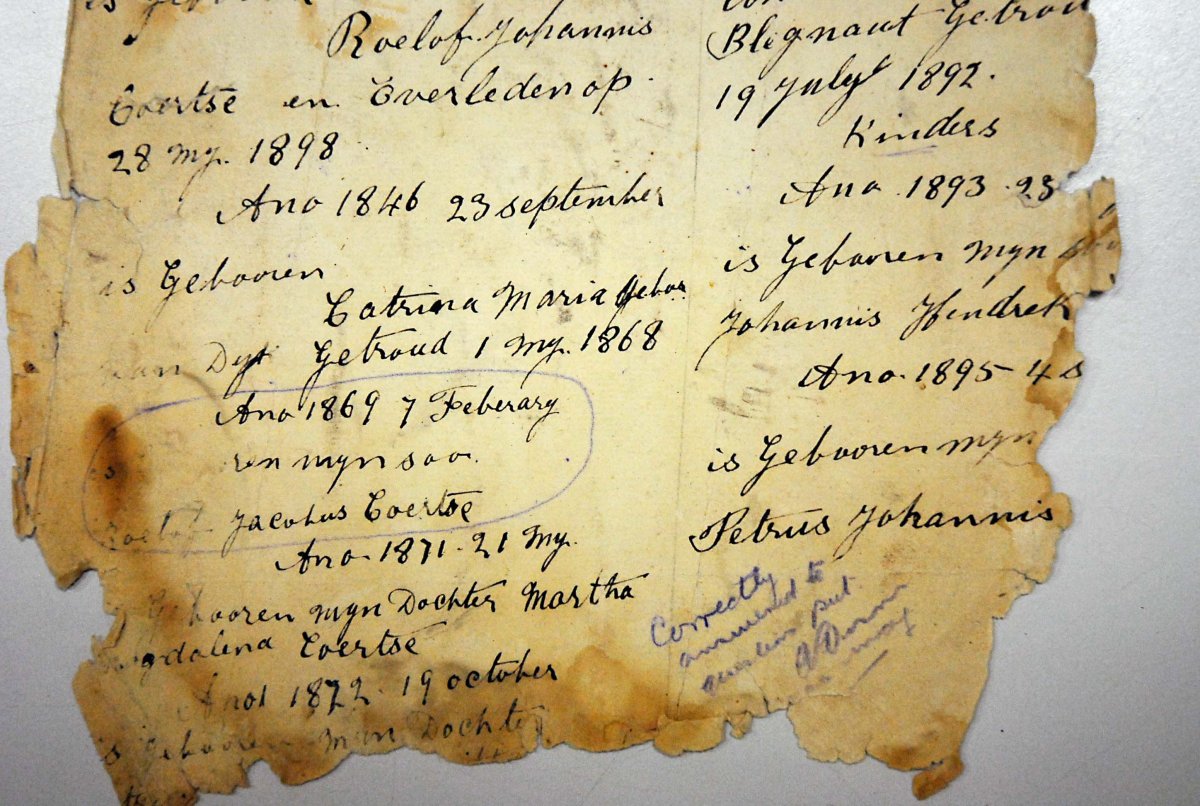 is
Roelof Johannis
Coertse en Overleden op
28 My. 1898
Ano 1846 23 september
is Gebooren
Catrina Maria
van Dyk Getroud 1 My. 1868
Ano 1869 7 Feberary
ren myn soo
Roelof Jacobus Coertse
Ano 1871. 21 My.
Gebooren myn Dochter Martha
agdalena Coertse
Ano 1872. 19 october
is Gebooren Myn Dochter
Blignaut Getrou
19 July 1892.
Kinders
Ano 1893 23
is Gebooren myn
Johannis Hendrek
Ano. 1895 4 s
is Gebooren myn
Petrus Johannis
Correctly
answered to
question put